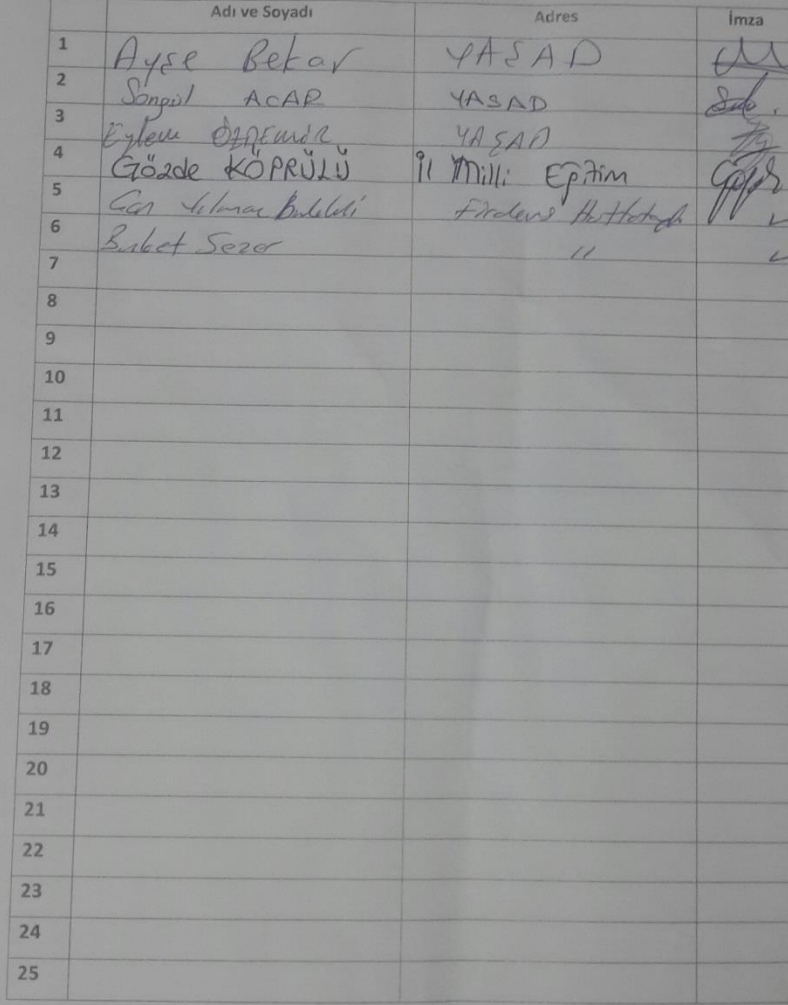 Adı ve Soyadı Adres İmza
1 Ayşe Bekar YAŞAD
2 Songül ACAR YASAD
3 Eylem ÖZDEMİR YAŞAD
4 Gözde KÖPRÜLÜ İl Milli Eğitim
5 Can Yılmaz
6 Buket Sezer "
7
8
9
10
11
12
13
14
15
16
17
18
19
20
21
22
23
24
25